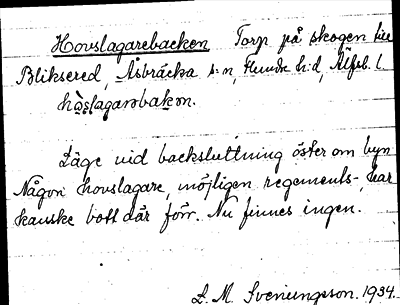 Hovslagarebacken Torp på skogen till
Bliksered, Åsbräcka s:n, Flundre h:d, Älfsb. l
hòslagarəbakən.
Läge vid backsluttning öster om byn
Någon hovslagare, möjligen regements-, har
kanske bott där förr. Nu finnes ingen.
L. M. Svenungsson. 1934.